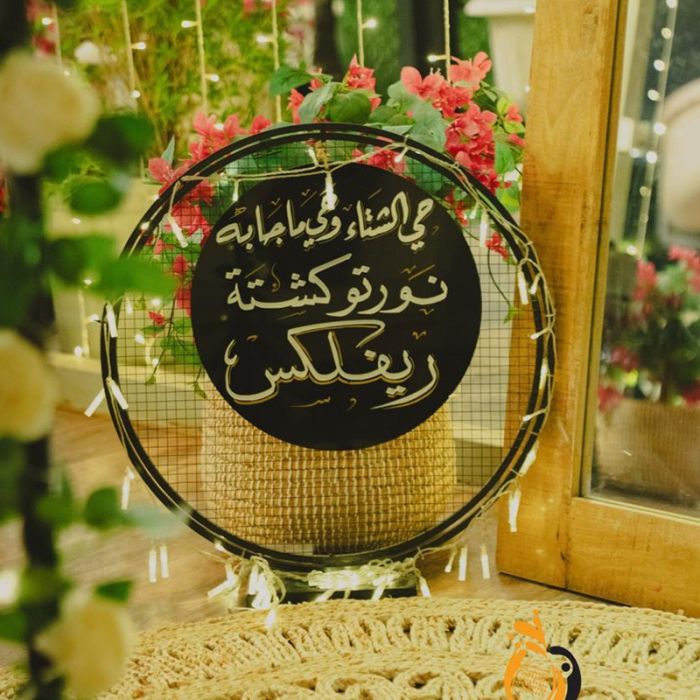 حي الشتاء وحي ماجابه
نورتو كشتة
ريفلكس